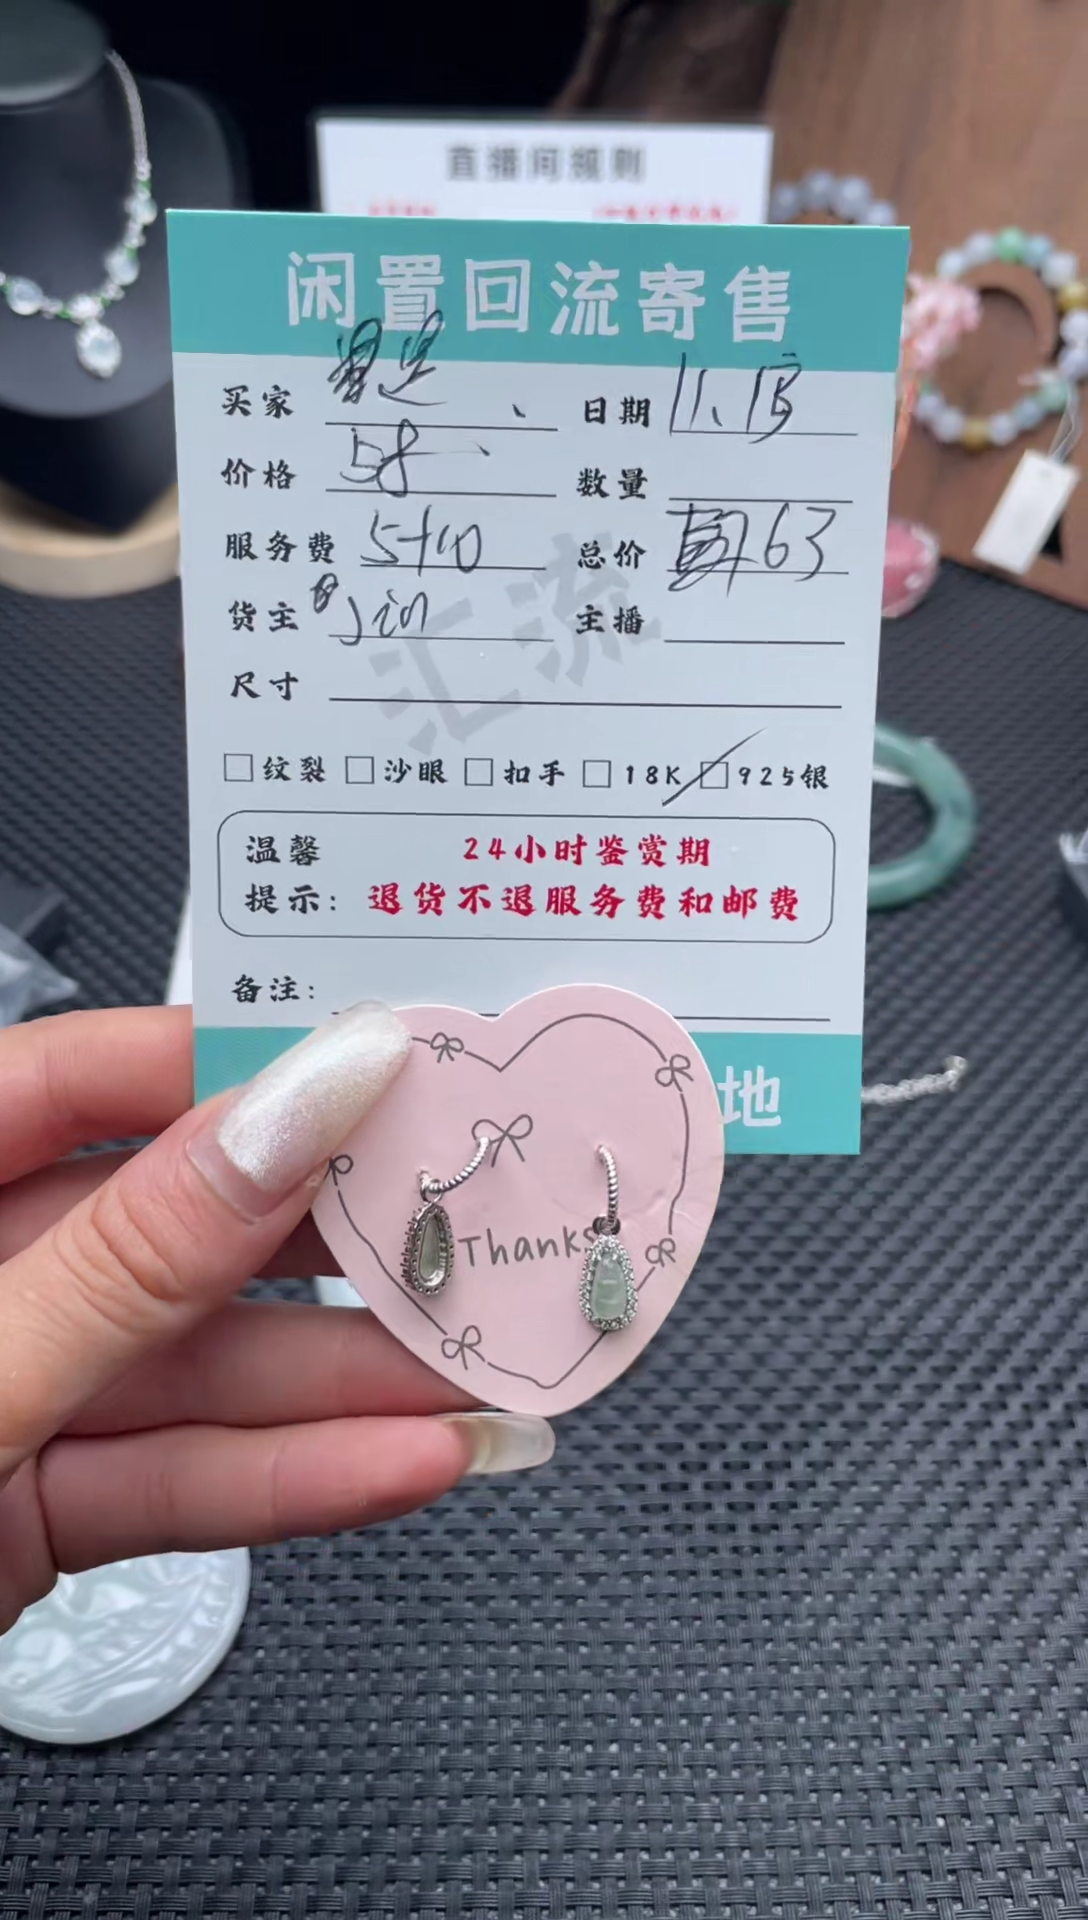 直播间规则
闲置回流寄售
买家 日期 11.13
价格 58 数量
服务费 5+10 总价 63
货主 Jin 主播
尺寸
汇流
□纹裂 □沙眼 □扣手 □18K □925银
温馨 24小时鉴赏期
提示: 退货不退服务费和邮费
备注:
地
Thanks